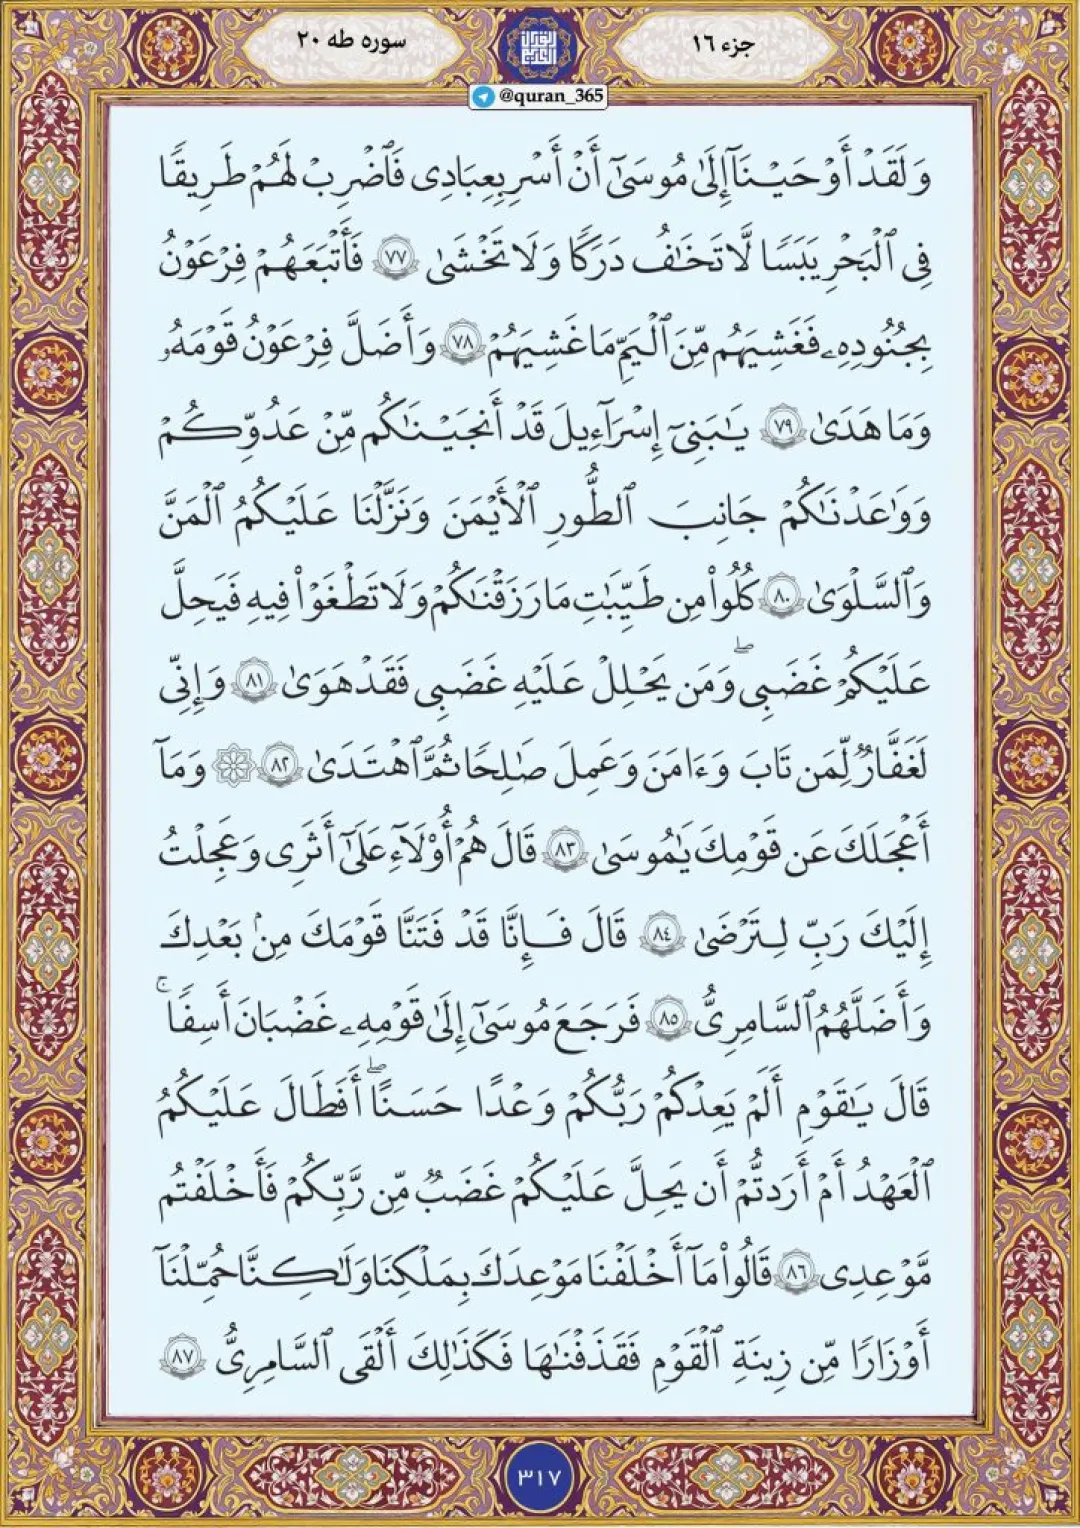 جزء ۱۶
سوره طه ۲۰
@quran_365
وَلَقَدْ أَوْحَيْنَآ إِلَىٰ مُوسَىٰٓ أَنْ أَسْرِ بِعِبَادِى فَٱضْرِبْ لَهُمْ طَرِيقًا
فِى ٱلْبَحْرِ يَبَسًا لَّا تَخَٰفُ دَرَكًا وَلَا تَخْشَىٰ ٧٧ فَأَتْبَعَهُمْ فِرْعَوْنُ
بِجُنُودِهِۦ فَغَشِيَهُم مِّنَ ٱلْيَمِّ مَا غَشِيَهُمْ ٧٨ وَأَضَلَّ فِرْعَوْنُ قَوْمَهُۥ
وَمَا هَدَىٰ ٧٩ يَٰبَنِىٓ إِسْرَٰٓءِيلَ قَدْ أَنجَيْنَٰكُم مِّنْ عَدُوِّكُمْ
وَوَٰعَدْنَٰكُمْ جَانِبَ ٱلطُّورِ ٱلْأَيْمَنَ وَنَزَّلْنَا عَلَيْكُمُ ٱلْمَنَّ
وَٱلسَّلْوَىٰ ٨٠ كُلُوا۟ مِن طَيِّبَٰتِ مَا رَزَقْنَٰكُمْ وَلَا تَطْغَوْا۟ فِيهِ فَيَحِلَّ
عَلَيْكُمْ غَضَبِى ۖ وَمَن يَحْلِلْ عَلَيْهِ غَضَبِى فَقَدْ هَوَىٰ ٨١ وَإِنِّى
لَغَفَّارٌ لِّمَن تَابَ وَءَامَنَ وَعَمِلَ صَٰلِحًا ثُمَّ ٱهْتَدَىٰ ٨٢ ۞ وَمَآ
أَعْجَلَكَ عَن قَوْمِكَ يَٰمُوسَىٰ ٨٣ قَالَ هُمْ أُو۟لَآءِ عَلَىٰٓ أَثَرِى وَعَجِلْتُ
إِلَيْكَ رَبِّ لِتَرْضَىٰ ٨٤ قَالَ فَإِنَّا قَدْ فَتَنَّا قَوْمَكَ مِنۢ بَعْدِكَ
وَأَضَلَّهُمُ ٱلسَّامِرِىُّ ٨٥ فَرَجَعَ مُوسَىٰٓ إِلَىٰ قَوْمِهِۦ غَضْبَٰنَ أَسِفًا ۚ
قَالَ يَٰقَوْمِ أَلَمْ يَعِدْكُمْ رَبُّكُمْ وَعْدًا حَسَنًا ۖ أَفَطَالَ عَلَيْكُمُ
ٱلْعَهْدُ أَمْ أَرَدتُّمْ أَن يَحِلَّ عَلَيْكُمْ غَضَبٌ مِّن رَّبِّكُمْ فَأَخْلَفْتُم
مَّوْعِدِى ٨٦ قَالُوا۟ مَآ أَخْلَفْنَا مَوْعِدَكَ بِمَلْكِنَا وَلَٰكِنَّا حُمِّلْنَآ
أَوْزَارًا مِّن زِينَةِ ٱلْقَوْمِ فَقَذَفْنَٰهَا فَكَذَٰلِكَ أَلْقَى ٱلسَّامِرِىُّ ٨٧
٣١٧